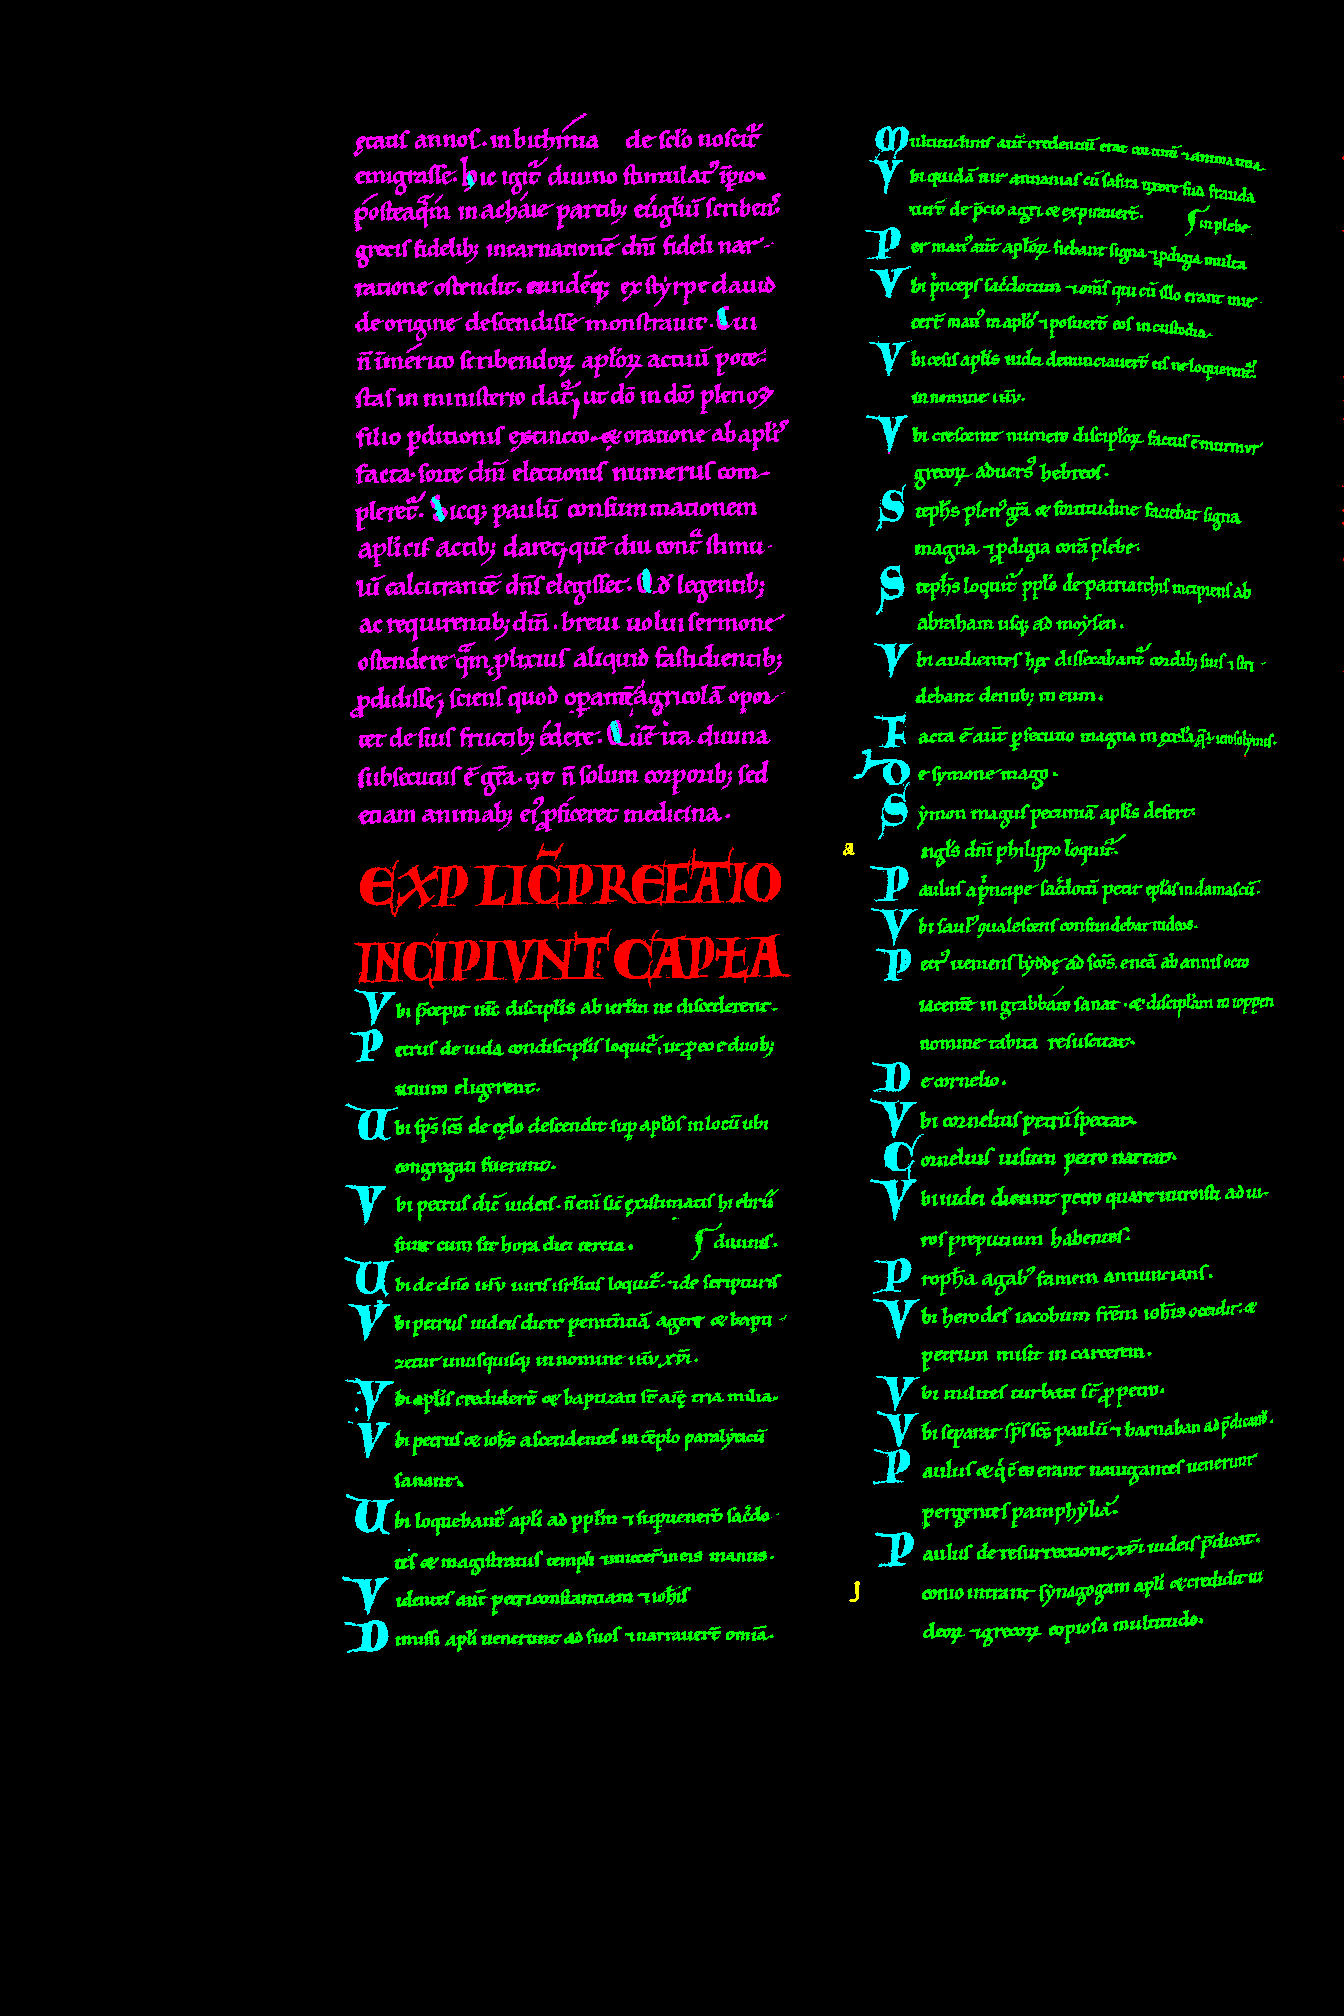 ętatis annos. in bithinia de sclo noscit᷑
emigrasse. hic igit᷑ diuino stimulat᷒ sp̄o.
posteaq̄m in achaie partib; euglıū scriben᷒
grecis fidelib; incarnationē dnī fideli nar-
ratione ostendit. eundēq; ex styrpe dauid
de origine descendisse monstrauit. Cui
n̄ īmerito scribendoꝝ aplōꝝ actuū pote-
stas in ministerio dat᷑, ut dō in dō pleno ⁊
filio ꝑditionis extincto. & oratione ab aplīs
facta. sorte dnī electionis numerus com-
pleret᷑. Sicq; paulū consummationem
aplicis actib; daret, quē diu cont᷑ stimu-
lū calcitrantē dn̄s elegisset. Qđ legentib;
ac requirentib; dm̄. breui uolui sermone
ostendere q̄m plixius aliquid fastidientib;
ꝓdidisse, sciens quod oꝑantē agricolā opor-
tet de suis fructib; edere. Quē ita diuina
subsecutus ē gr̄a. ut n̄ solum corporib; sed
etiam animab; ei᷒ ꝓficeret medicina.
EXPLIC̄ PREFATIO
INCIPIVNT CAPŁA
Vbi p̄cepit ihc̄ discipłis ab ierłm ne discederent.
Petrus de iuda condiscipłis loquit᷑, ut ꝑ eo e duob;
unum eligerent.
Ubi sp̄s sc̄s de cęlo descendit sup apłos in locū ubi
congregati fuerunt.
Vbi petrus dic̄ iudeis. n̄ enī sic̄ existimatis hi ebrii
sunt cum sit hora diei tercia. diuinis.
Ubi de dn̄o ihū uiris isrłitis loquit᷑. ⁊ de scripturis
Vbi petrus iudeis dicit penitentiā agere & bapti-
zetur unusquisq; in nomine ihū xp̄i.
Vbi apłis credidert̄ & baptizati st̄ aīę tria milia.
Vbi petrus & ioh̄s ascendentes in tēplo paralyticū
sanant.
Ubi loquebant᷑ apłi ad ppłm ⁊ supuenert̄ sac̄do-
tes & magistratus templi ⁊ iniecer̄ in eis manus.
Videntes aut̄ petri constantiam ⁊ ioh̄is
Dimissi apłi uenerunt ad suos ⁊ narrauert̄ omīa.
Multitudinis aut̄ credentiū erat cor unū ⁊ anima una.
Vbi quidā uir annanias cū safira uxore sua frauda
uert̄ de p̄cio agri & expirauert̄. in plebe
Per man᷒ aut̄ apłoꝝ fiebant signa ⁊ ꝓdigia multa
Vbi princeps sac̄dotum ⁊ om̄s qui cū illo erant inie-
cert̄ man᷒ in apłos ⁊ posuert̄ eos in custodia.
Vbi cesis apłis iudei denunciauert̄ eis ne loquerent᷑
in nomine ihū.
Vbi crescente numero discipłoꝝ factus ē murmur
grecoꝝ aduers᷒ hebreos.
Steph̄s plen᷒ gr̄a & fortitudine faciebat signa
magna ⁊ ꝓdigia corā plebe.
Steph̄s loquit᷑ ppło de patriarchis incipiens ab
abraham usq; ad moysen.
Vbi audientes hęc dissecabant᷑ cordib; suis ⁊ stri-
debant dentib; in eum.
Facta ē aut̄ ꝑsecutio magna in eccła q̄ ē ierosolymis.
De symone mago.
Symon magus pecuniā apłis defert.
a
ngłs dnī philippo loquit᷑.
Paulus a principe sac̄dotū petit epłas in damascū.
Vbi saul᷒ conualescens confundebat iudeos.
Petr᷒ ueniens lyddę ad sc̄os. eneā ab annis octo
iacentē in grabbato sanat. & discipłam in ioppen
nomine tabita resuscitat.
De cornelio.
Vbi cornelius petrū spectat.
Cornelius uisum petro narrat.
Vbi iudei dicunt petro quare introisti ad ui-
ros preputium habentes.
Proph̄a agab᷒ famem annuncians.
Vbi herodes iacobum frēm ioh̄is occidit. &
petrum misit in carcerem.
Vbi milites turbati st̄ ꝑ petro.
Vbi separat sp̄s sc̄s paulū ⁊ barnaban ad p̄dicand᷒.
Paulus & q̄ cū eo erant nauigantes uenerunt
pergentes pamphyliā.
Paulus de resurrectione xp̄i iudeis p̄dicat.
J
conio intrant synagogam apłi & credidit iu
deoꝝ ⁊ grecoꝝ copiosa multitudo.